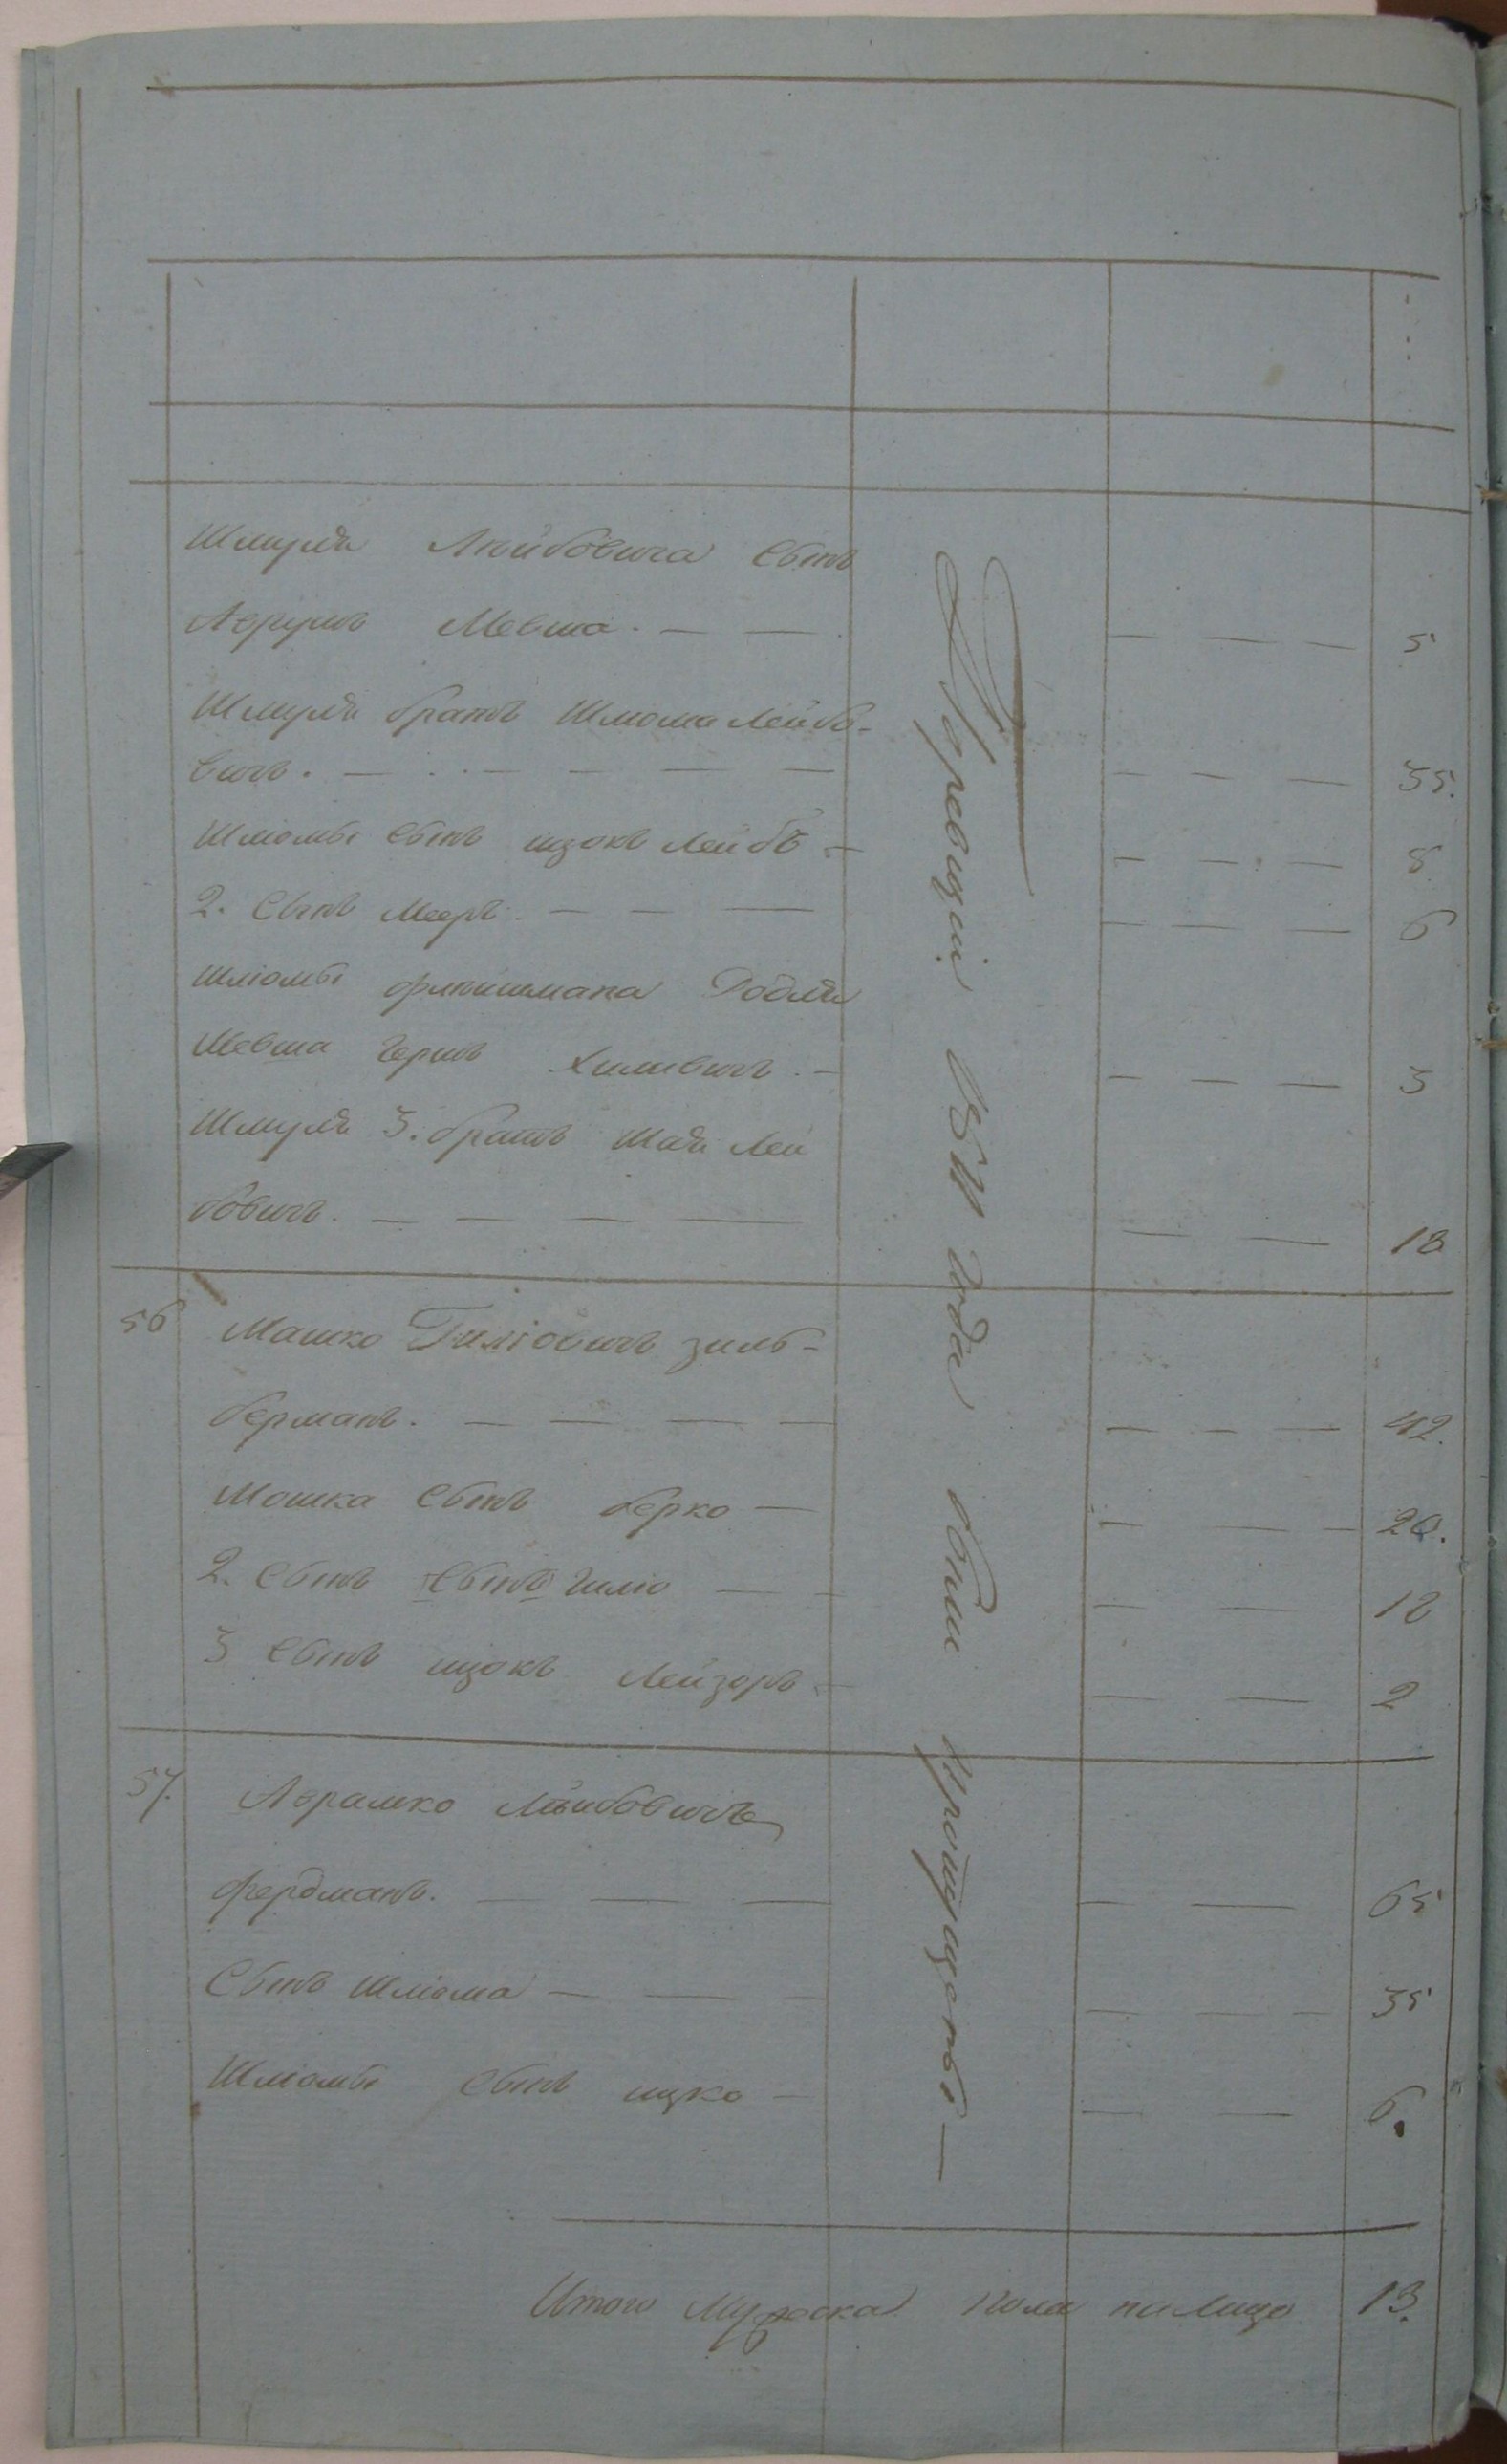 Шмуля Лейбовича сынъ
Аврумъ Мевша. — — 5
Шмуля братъ Шлома Лейбо-
вичъ. — — — — 35.
Шліомы сынъ ицокъ Лейбъ — 8
2. сынъ Мееръ. — — — 6
Шліомы
Мевша Герша Хаимвичъ. — 3
Шмуля 3. братъ Лей
бовичъ. — — — — 18
56 Машко Гиліовичъ зиль-
берманъ. — — — — 42.
Мошка сынъ берко — 20.
2. сынъ сынъ гиліо — — 12
3 сынъ ицокъ Лейзоръ — 2
57. Аврамко Лейбовичъ
фердманъ. — — — 65
Сынъ Шліома — — — 35
Шліомы сынъ ицко — 6.
Ревизіи 1811 года были пропущены —
Итого Мужеска пола на лицо 13.